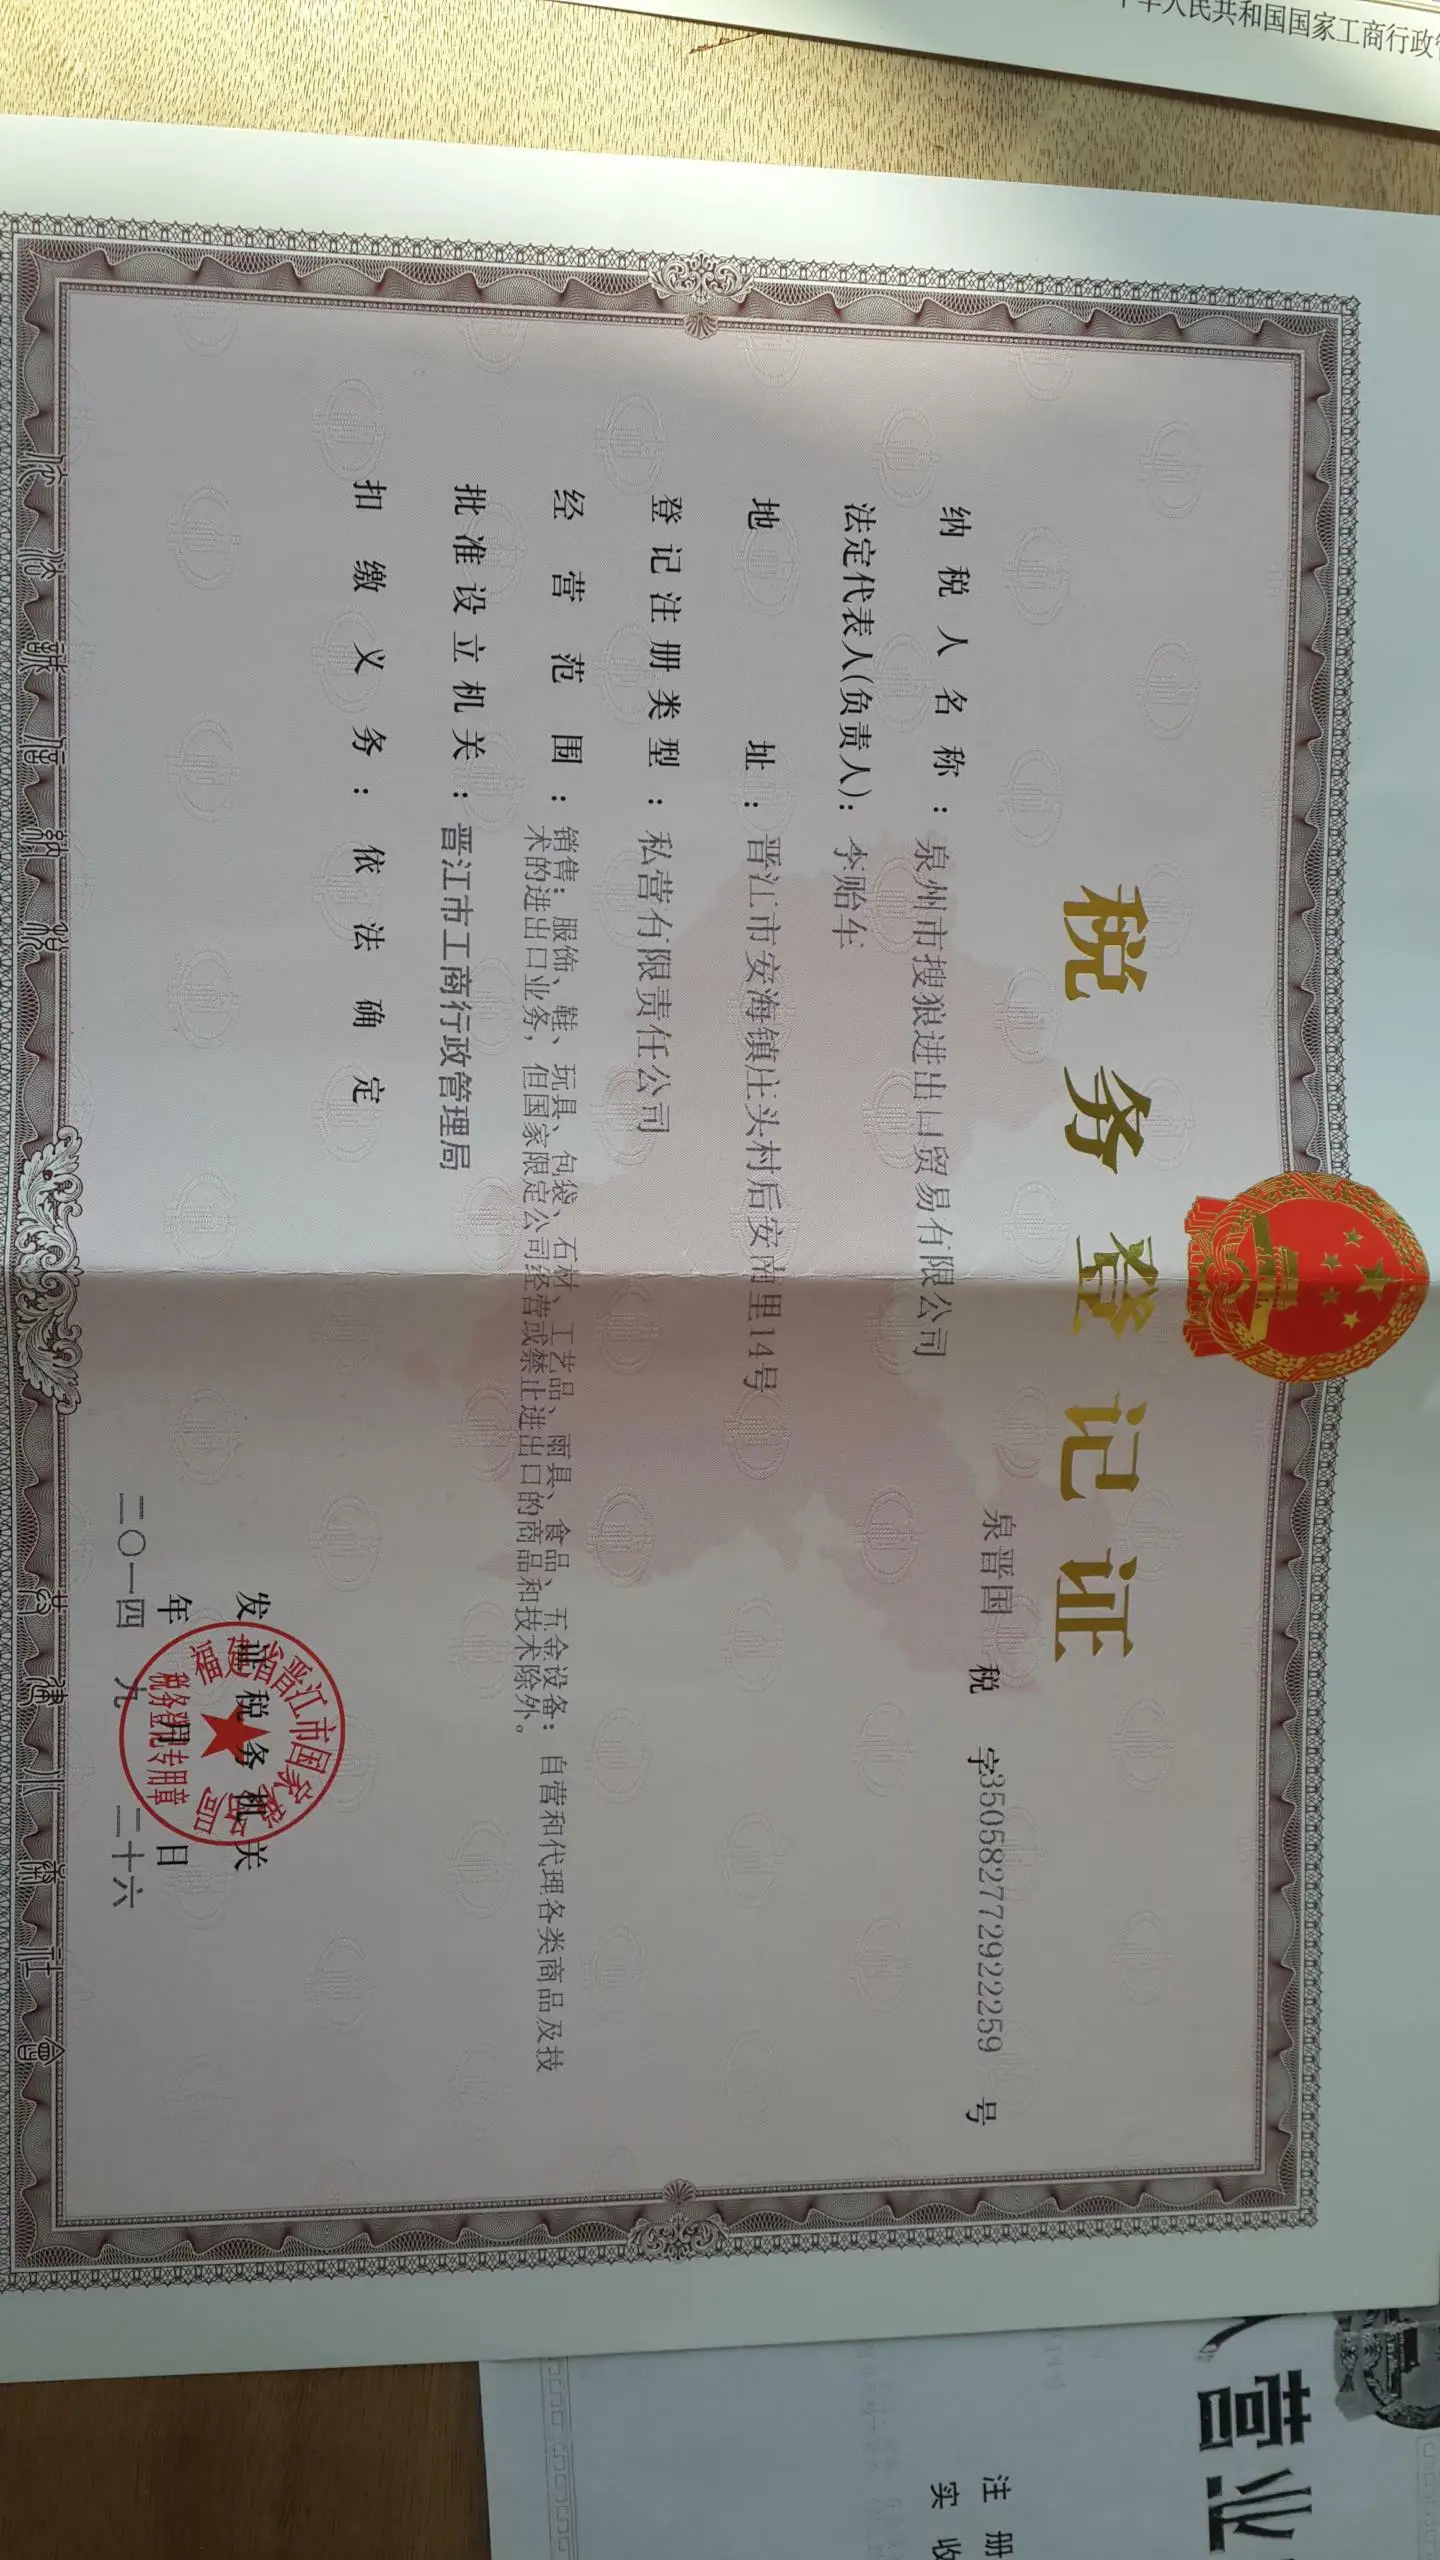 中华人民共和国国家工商行政管
税务登记证
泉晋国 税 字350582772922259 号
纳税人名称：泉州市搜狼进出口贸易有限公司
法定代表人(负责人)：李贻车
地址：晋江市安海镇庄头村后安南里14号
登记注册类型：私营有限责任公司
经营范围：销售：服饰、鞋、玩具、包袋、石材、工艺品、雨具、食品、五金设备；自营和代理各类商品及技
术的进出口业务，但国家限定公司经营或禁止进出口的商品和技术除外。
批准设立机关：晋江市工商行政管理局
扣缴义务：依法确定
发证税务机关
福建省晋江市国家税务局
税务登记专用章
年 月 日
二〇一四 九 二十六
依法诚信纳税 共建小康社会
营业
注册
实收